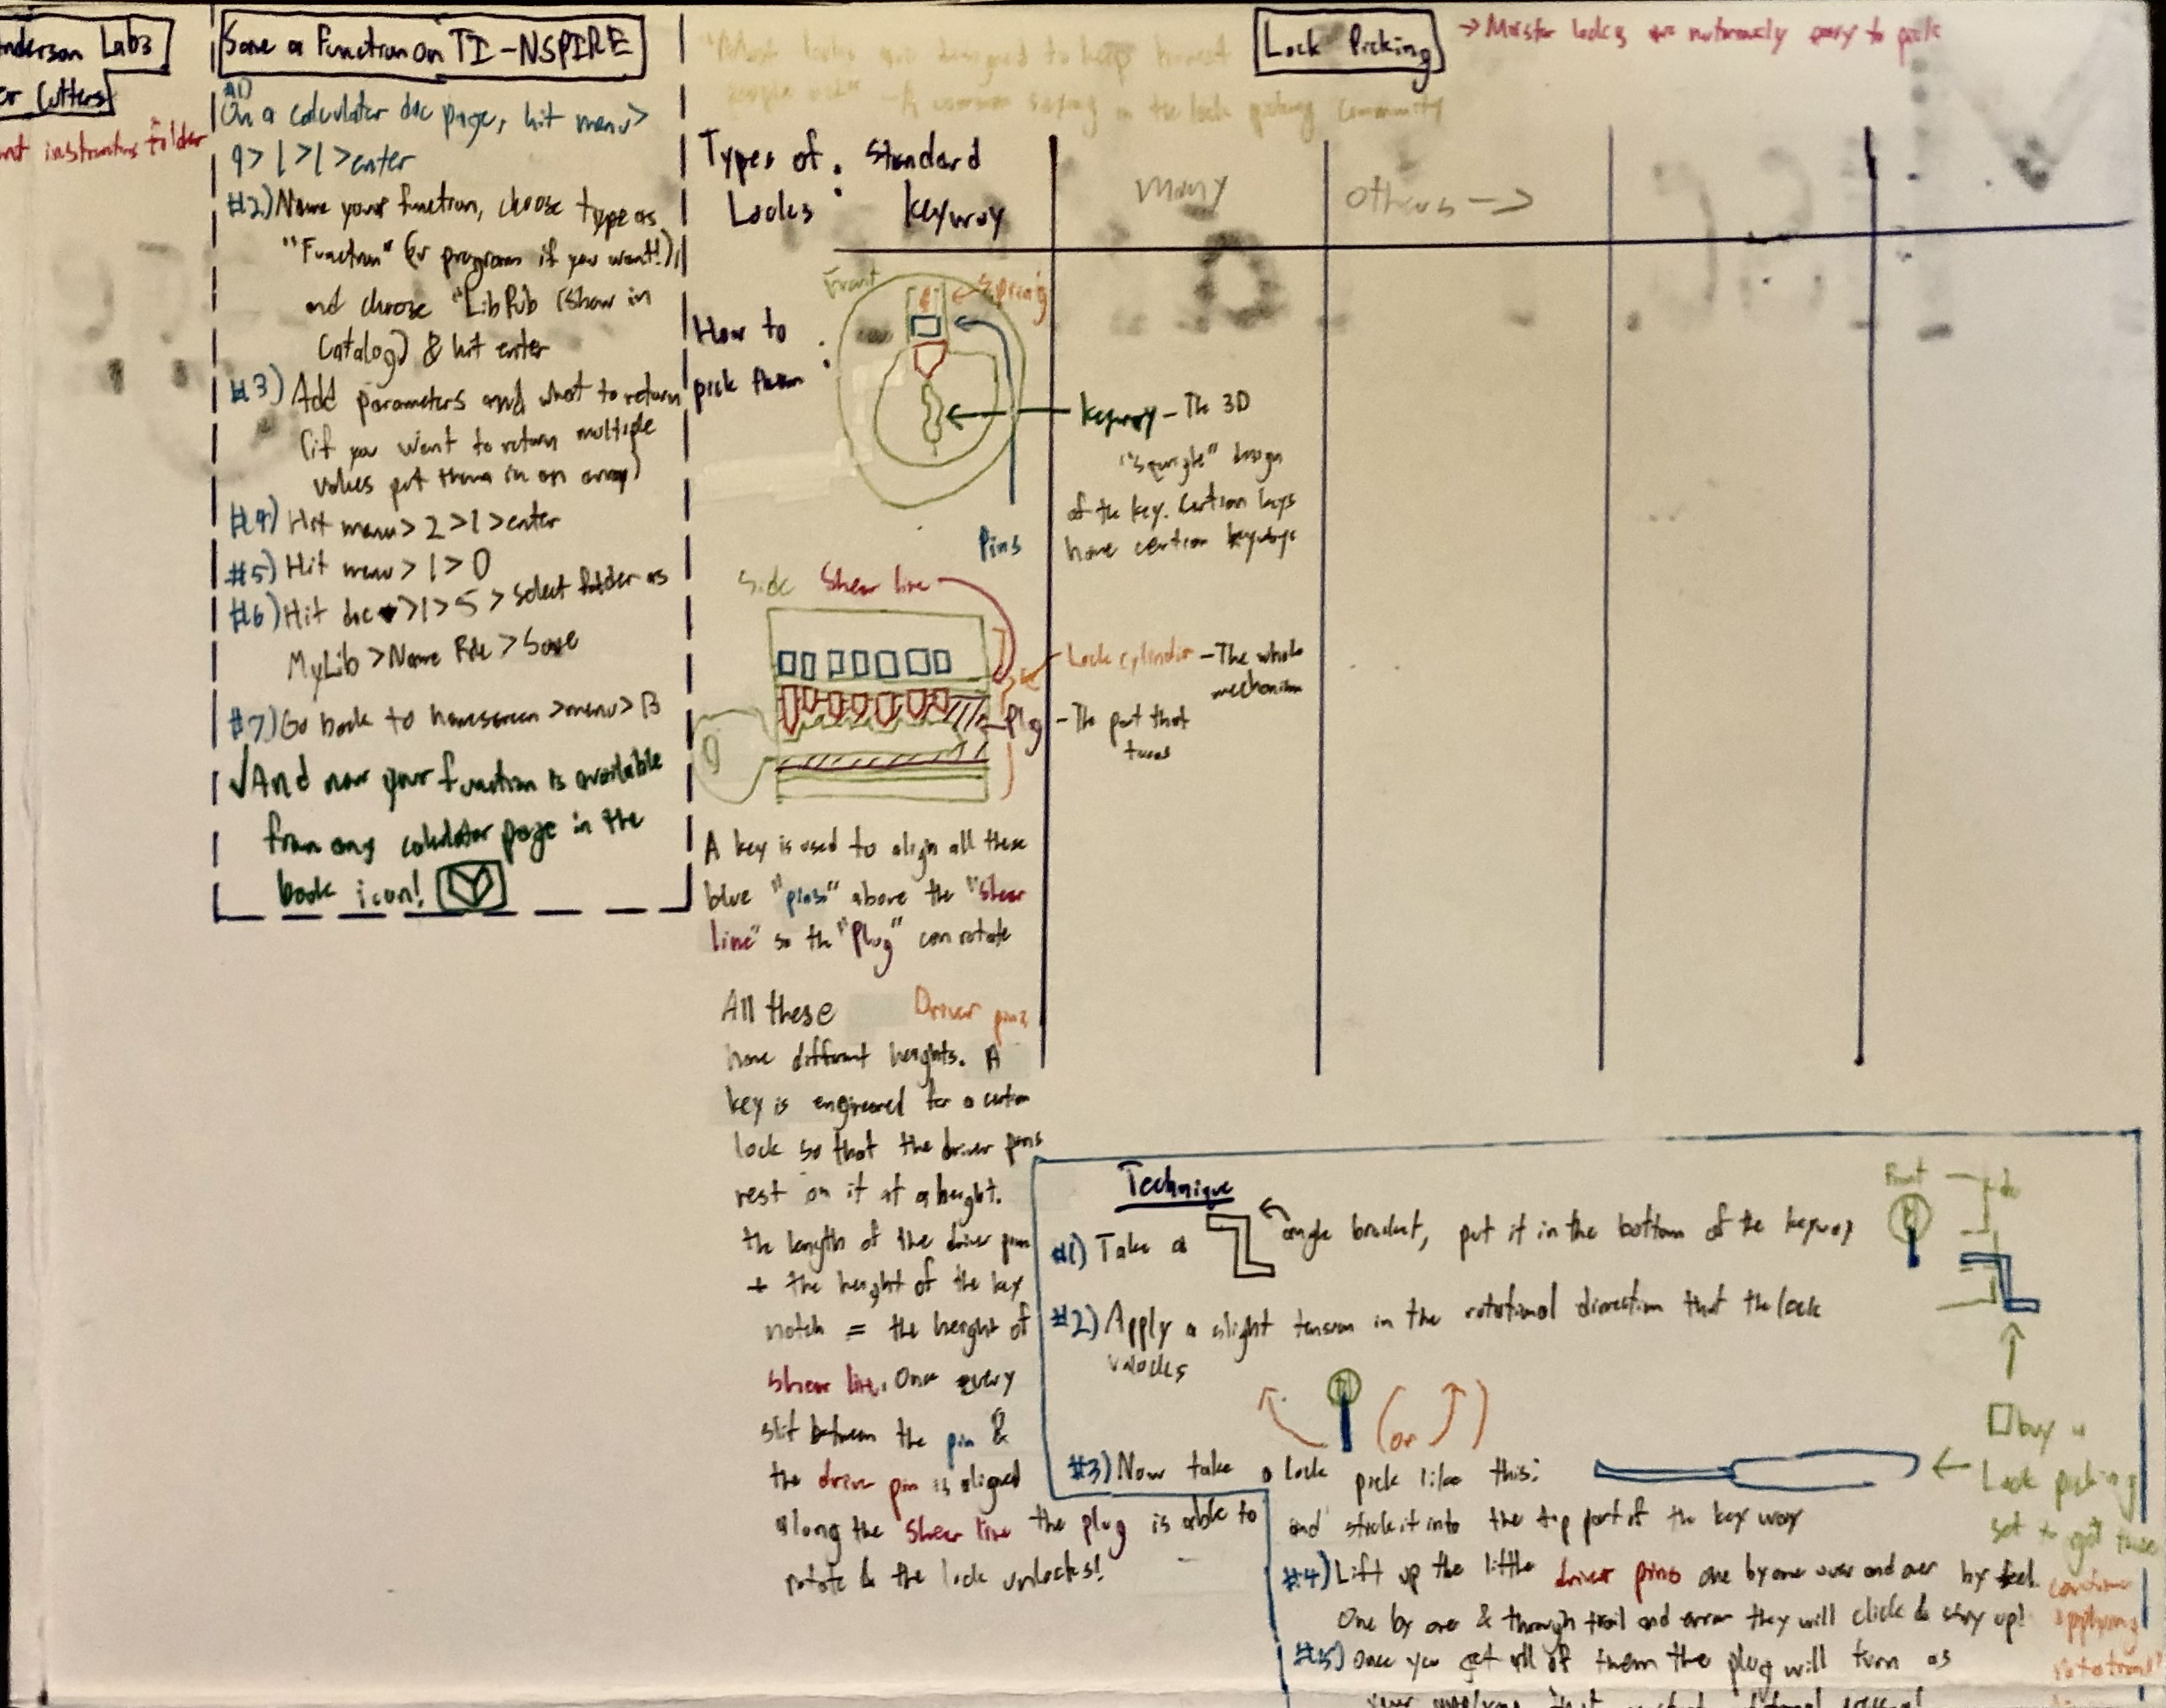 nderson Lab3
er Cutters
instructors folder
Save a Function on TI-NSPIRE
#1)
On a calculator doc page, hit menu>
9>1>1>enter
#2) Name your function, choose type as
"Function" (or program if you want!),
and choose "LibPub (Show in
Catalog) & hit enter
#3) Add parameters and what to return
(if you want to return multiple
values put them in an array)
#4) Hit menu>2>1>enter
#5) Hit menu>1>0
#6) Hit doc>1>5>select folder as
MyLib>Name File>Save
#7) Go back to homescreen>menu>B
✓And now your function is available
from any calculator page in the
book icon!
"Most locks are designed to help honest
people out" - A common saying in the lock picking community
Lock Picking
→Master locks are notoriously easy to pick
Types of
Locks :
Standard
Keyway
many
others →
How to
pick them :
Front
Spring
Pins
Keyway - The 3D
"Squigle" design
of the key. Certian keys
have certian keyways
Side
Shear line
Lock cylinder - The whole
mechanism
Plug - The part that
turns
A key is used to align all these
blue "pins" above the "shear
line" so the "Plug" can rotate
All these Driver pins
have different heights. A
key is engineered for a certian
lock so that the driver pins
rest on it at a height.
the length of the driver pin
+ the height of the key
notch = the height of
shear line. Once every
slit between the pin &
the driver pin is aligned
along the shear line the plug is able to
rotate & the lock unlocks!
Technique
#1) Take a angle bracket, put it in the bottom of the keyway
Front
#2) Apply a slight tension in the rotational direction that the lock
unlocks
(or )
#3) Now take a lock pick like this:
and stick it into the top part of the key way
buy a
Lock picking
set to get these
#4) Lift up the little driver pins one by one over and over by feel.
One by one & through trail and error they will click & stay up!
continue
applying
#5) Once you get all of them the plug will turn as